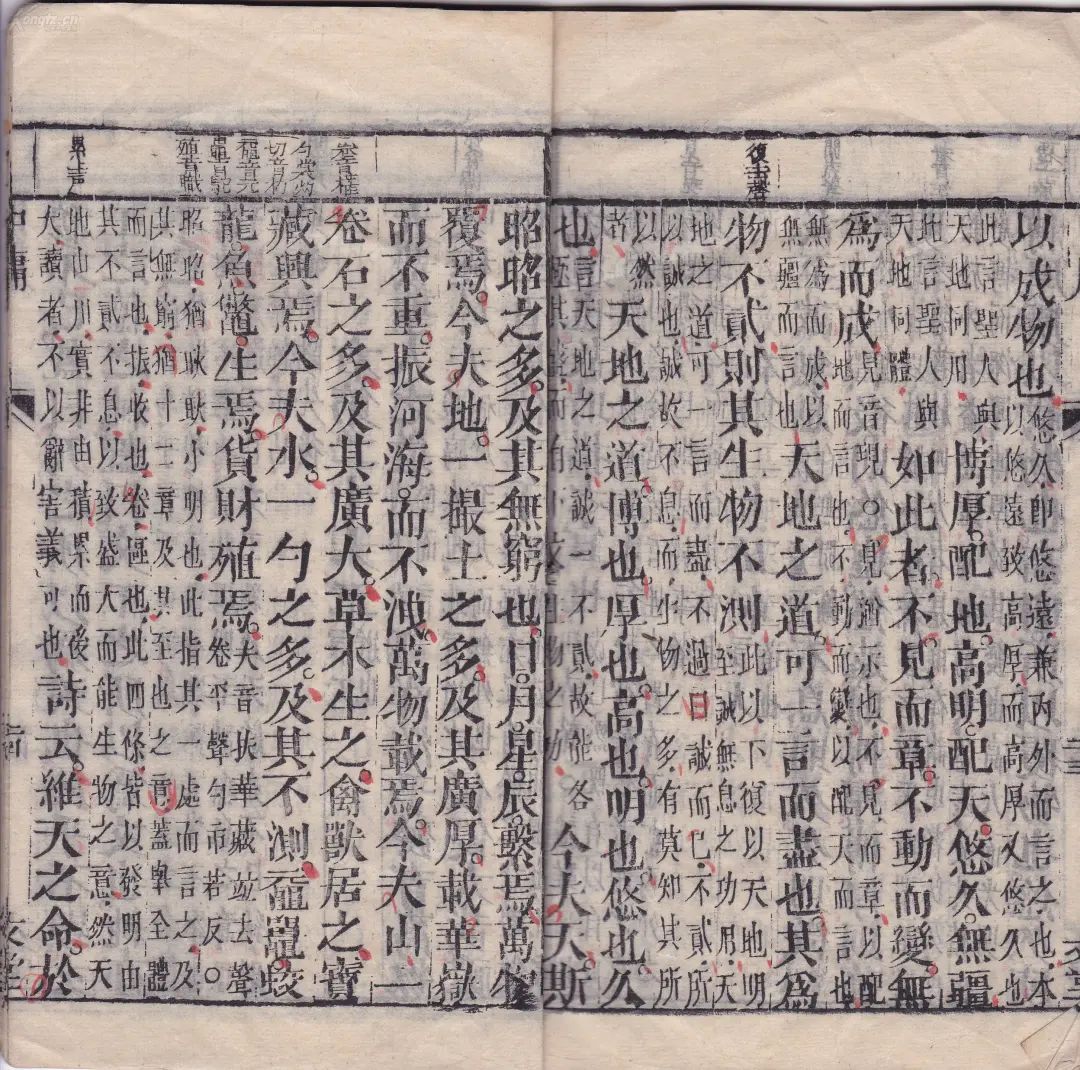 復去聲
以成物也悠久即悠遠兼內外而言之也本
以悠遠致高厚而高厚又悠久也
此言聖人與
天地同用博厚配地高明配天悠久無疆
此言聖人與
天地同體如此者不見而章不動而變無
為而成見音現○見猶示也不見而章以配
地而言也不動而變以配天而言也
無為而成以
無疆而言也天地之道可一言而盡也其為
物不貳則其生物不測此以下復以天地明
至誠無息之功用天
地之道可一言而盡不過曰誠而已不貳所
以誠也誠故不息而生物之多有莫知其所
以然
者天地之道博也厚也高也明也悠也久
也言天地之道誠一不貳故能各
極其盛而有下文生物之今夫天斯
卷音權
黿音元
殖音職
昭昭之多及其無窮也日月星辰繫焉萬物
覆焉今夫地一撮土之多及其廣厚載華嶽
而不重振河海而不洩萬物載焉今夫山一
卷石之多及其廣大草木生之禽獸居之寶
藏興焉今夫水一勺之多及其不測黿鼉蛟
龍魚鱉生焉貨財殖焉夫音扶華藏竝去聲
卷平聲勺市若反○
昭昭猶耿耿小明也此指其一處而言之及
其無窮猶十二章及其至也之意蓋舉全體
而言也振收也卷區也此四條皆以發明由
其不貳不息以致盛大而能生物之意然天
地山川實非由積累而後
大讀者不以辭害義可也詩云維天之命於
中庸